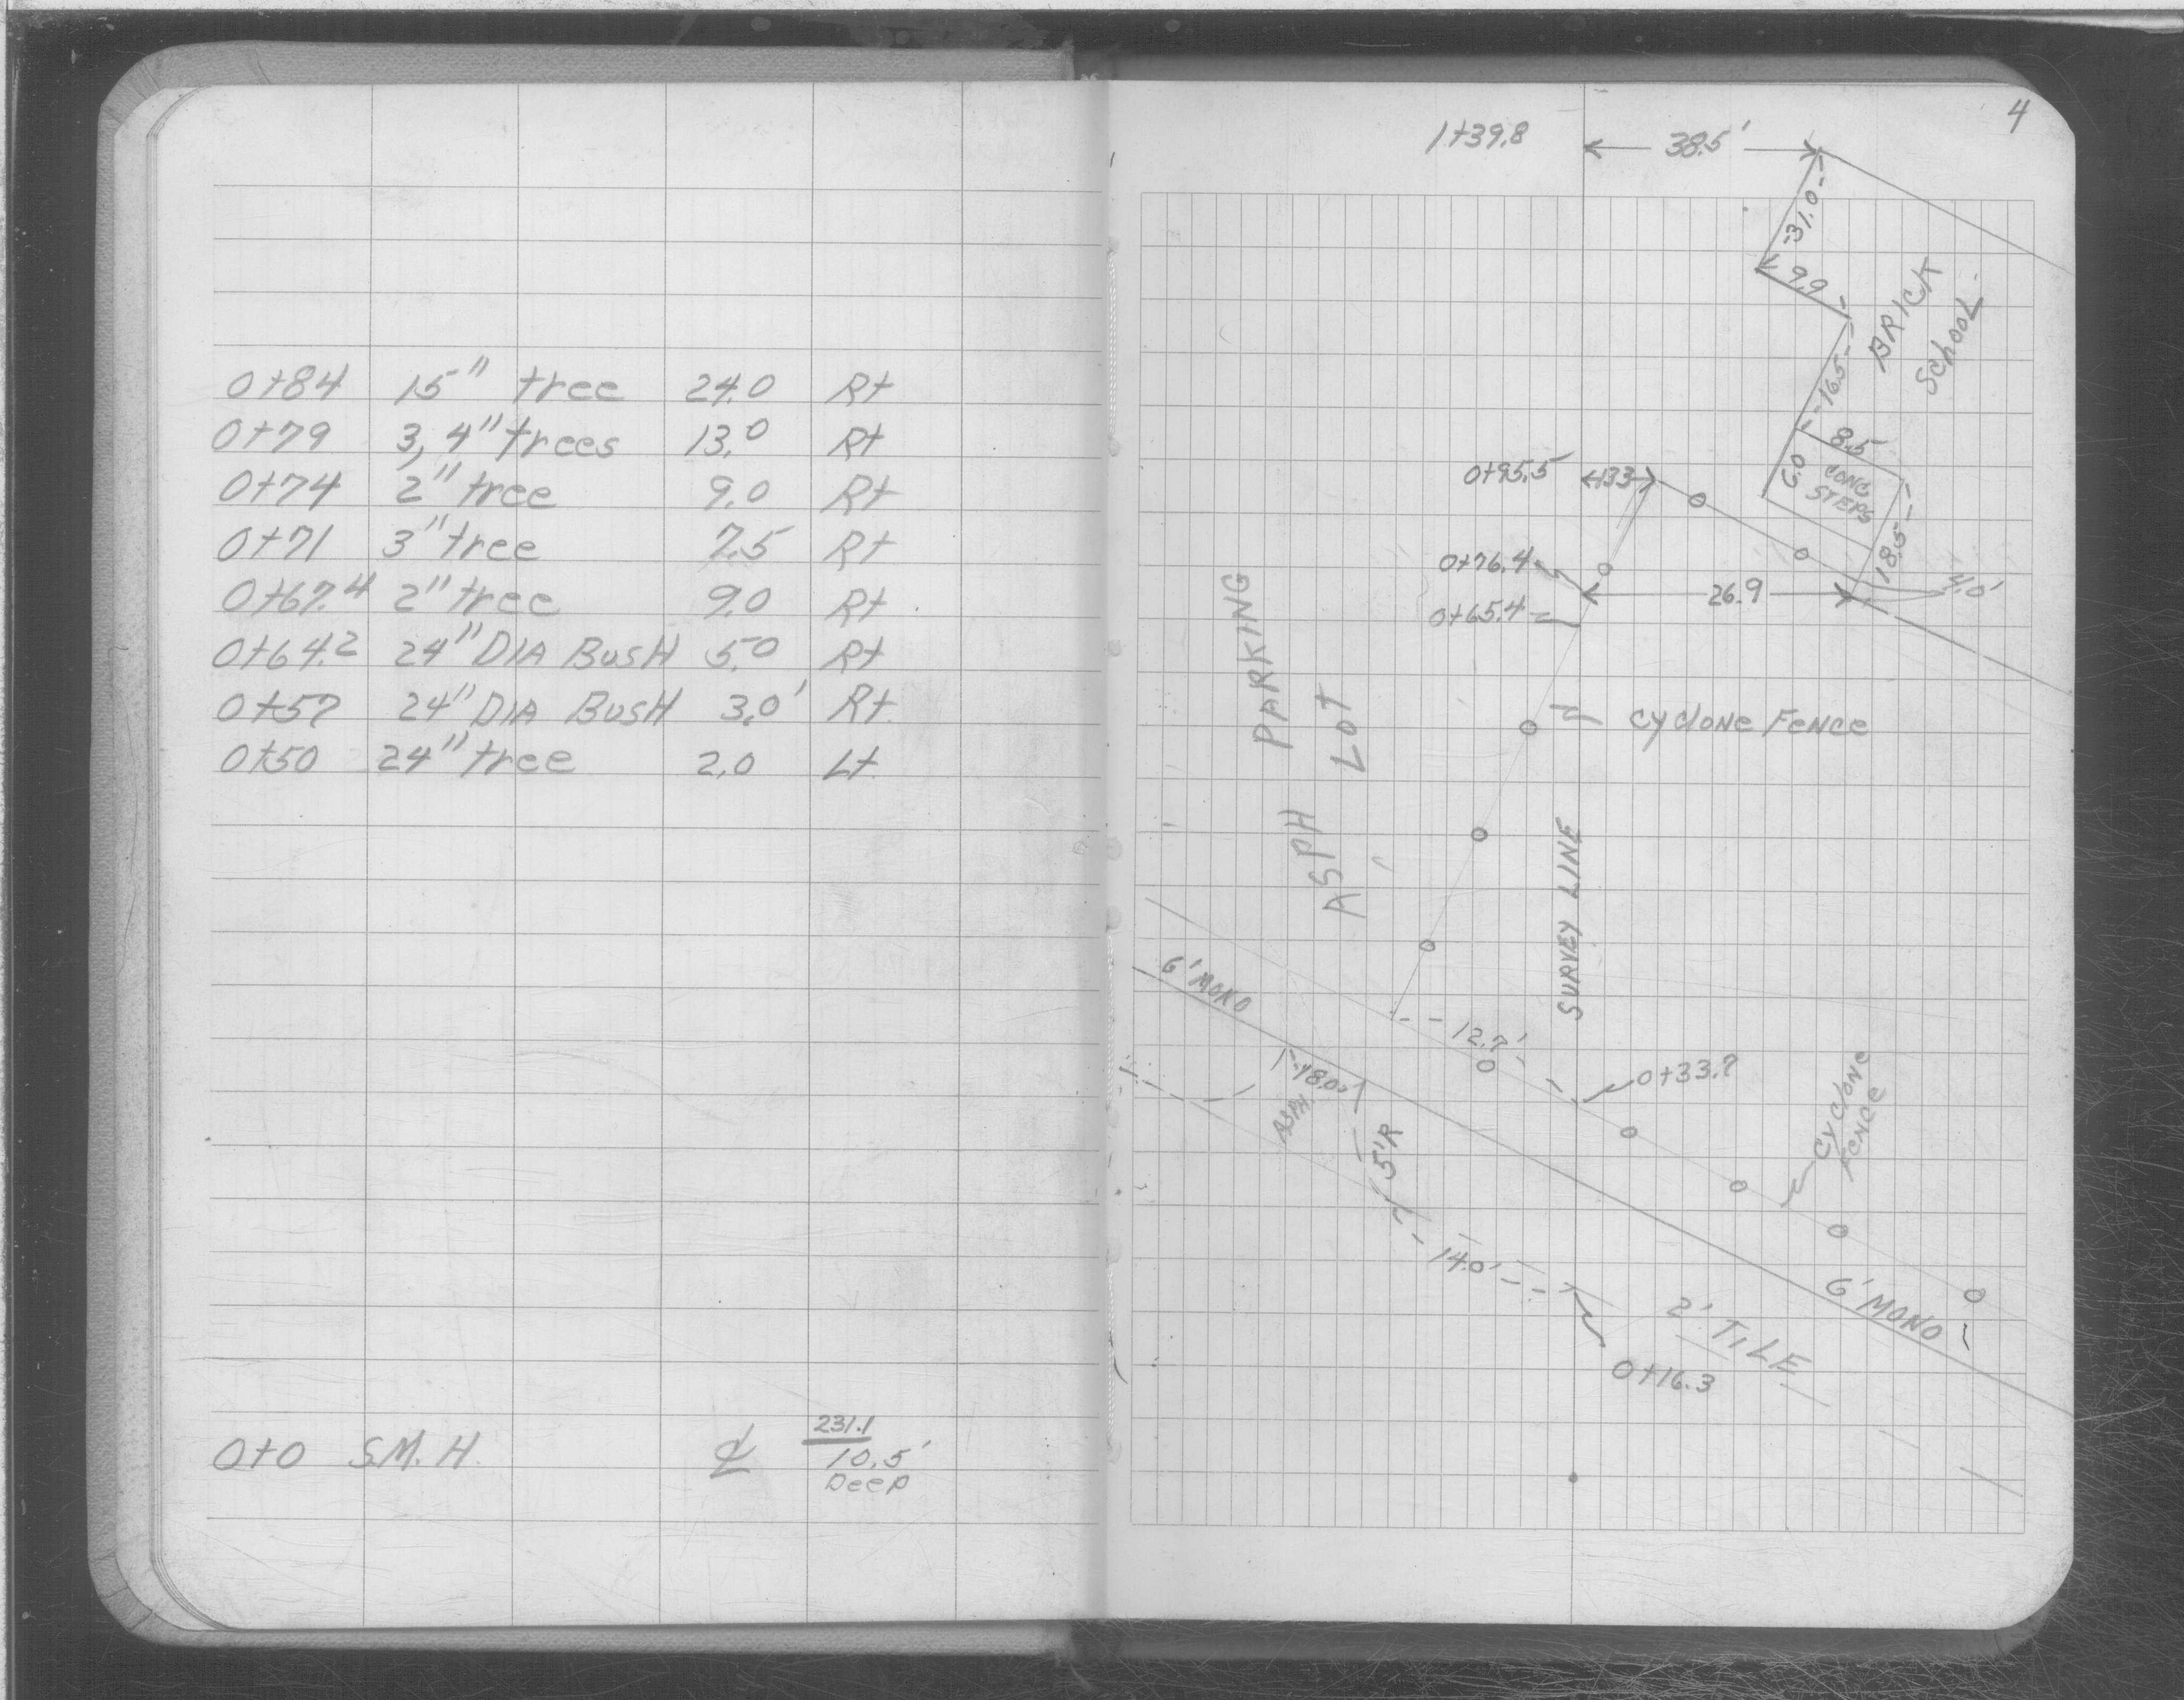 0+84 15" tree 24.0 Rt
0+79 3, 4" trees 13.0 Rt
0+74 2" tree 9.0 Rt
0+71 3" tree 7.5 Rt
0+67.4 2" tree 9.0 Rt
0+64.2 24" DIA BUSH 5.0 Rt
0+57 24" DIA BUSH 3.0' Rt.
0+50 24" tree 2.0 Lt
0+0 S.M.H. ℄ 231.1
10.5'
Deep
4
1+39.8 38.5'
31.0
9.9
BRICK
School
16.5
8.5
6.0
CONC
STEPS
0+95.5 133
18.5
0+76.4
26.9
4.0'
0+65.4
Cyclone Fence
ASPH PARKING
LOT
SURVEY LINE
6' MONO
12.7'
0+33.7
Cyclone
Fence
18.0
ASPH
5'R
14.0'
6' MONO
2' TILE
0+16.3